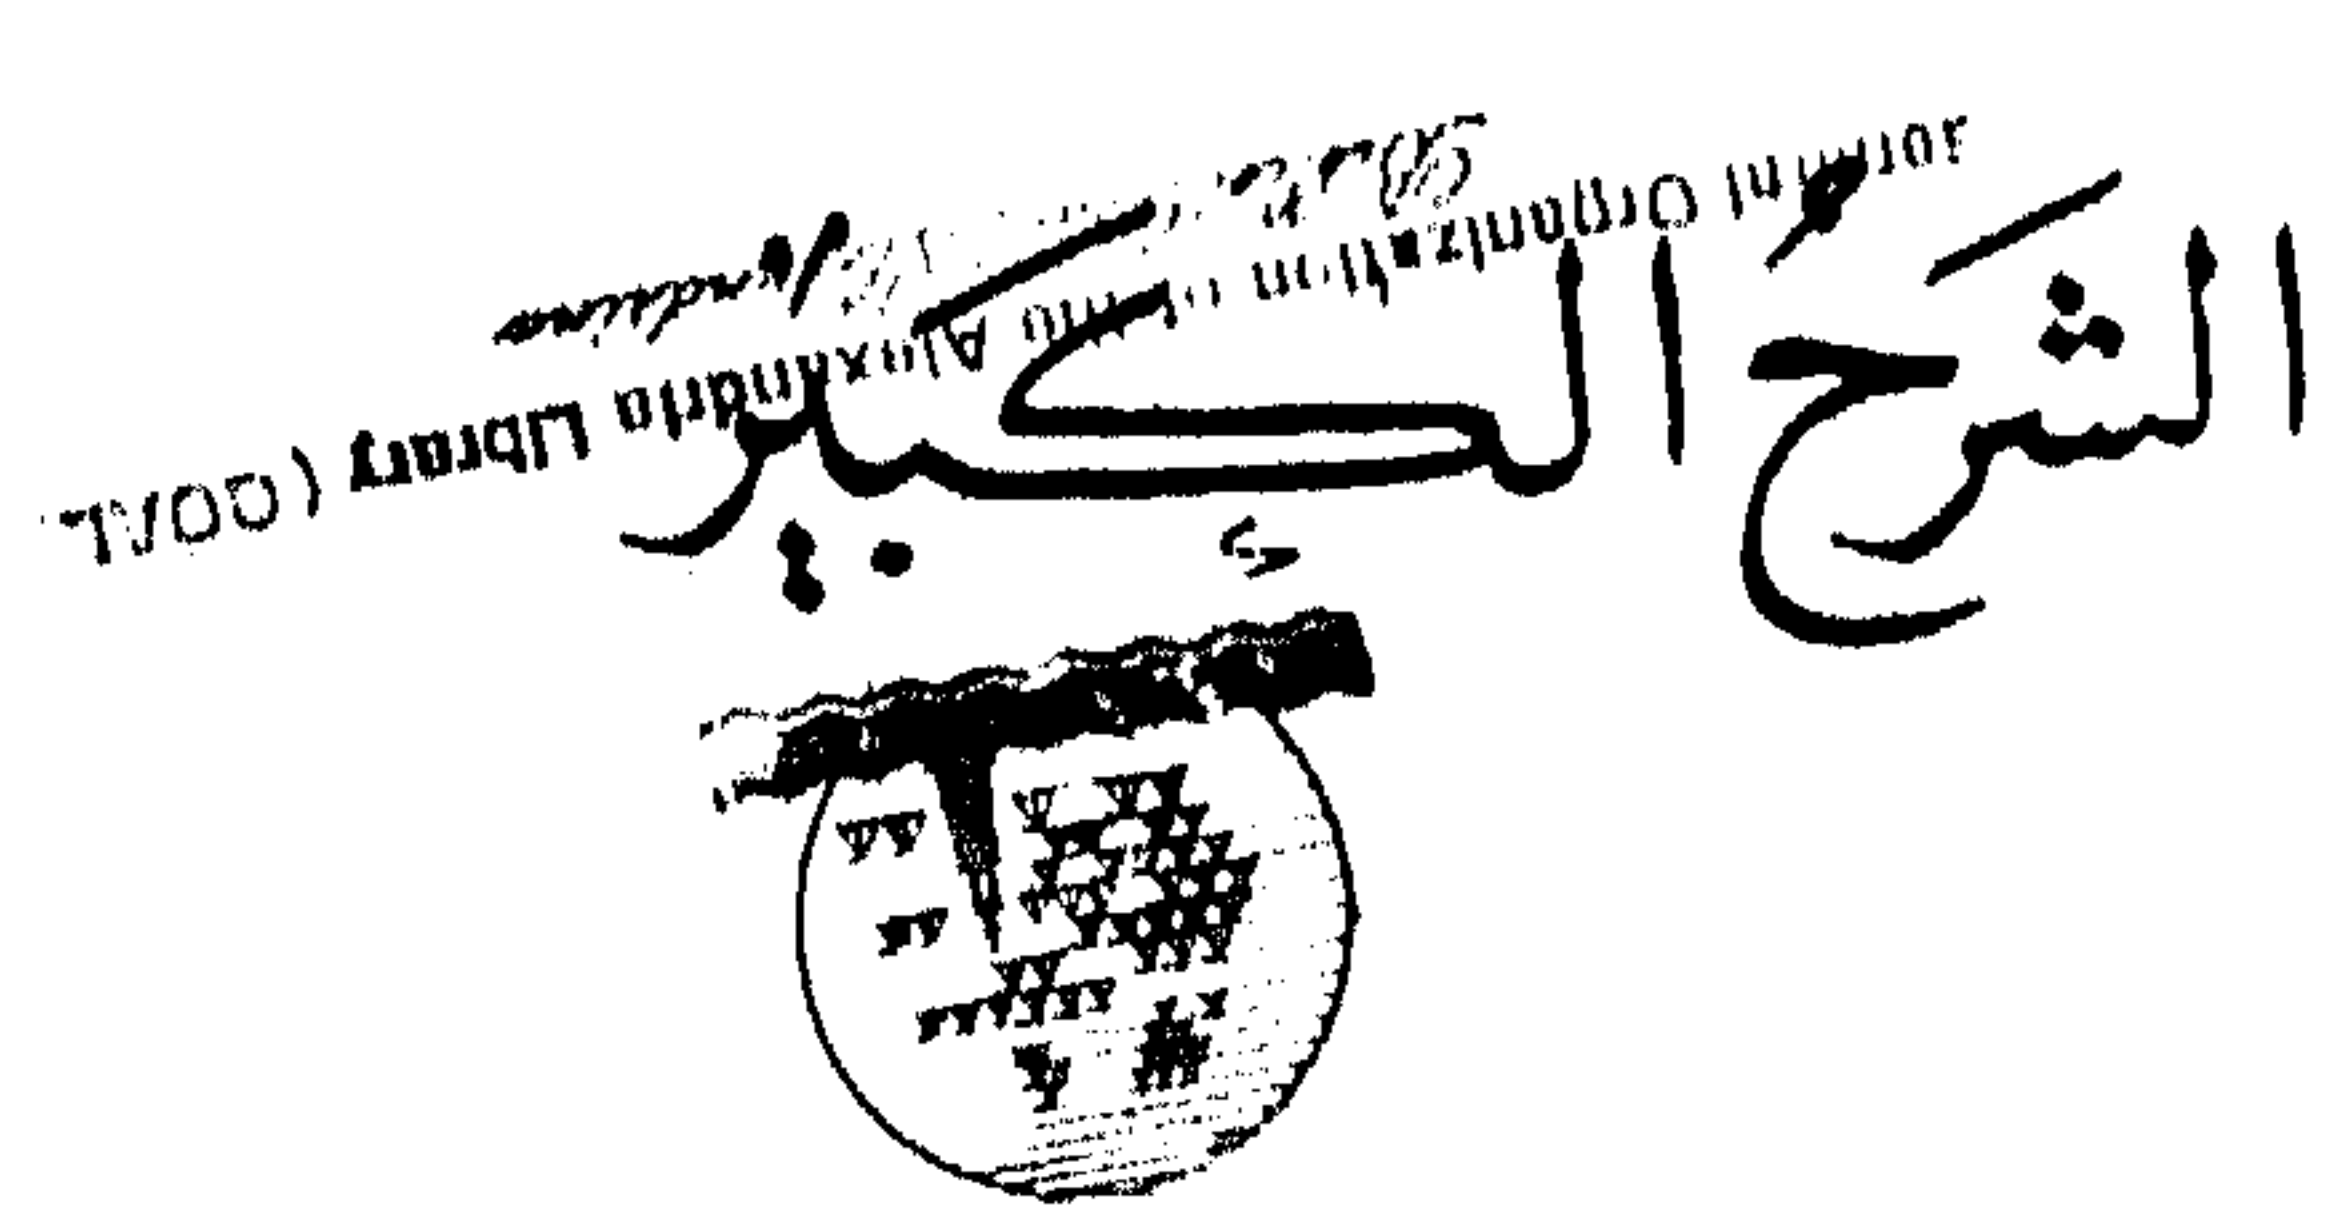 الشرح الكبير
General Organization of the Alexandria Library (GOAL
Bibliotheca Alexandrina